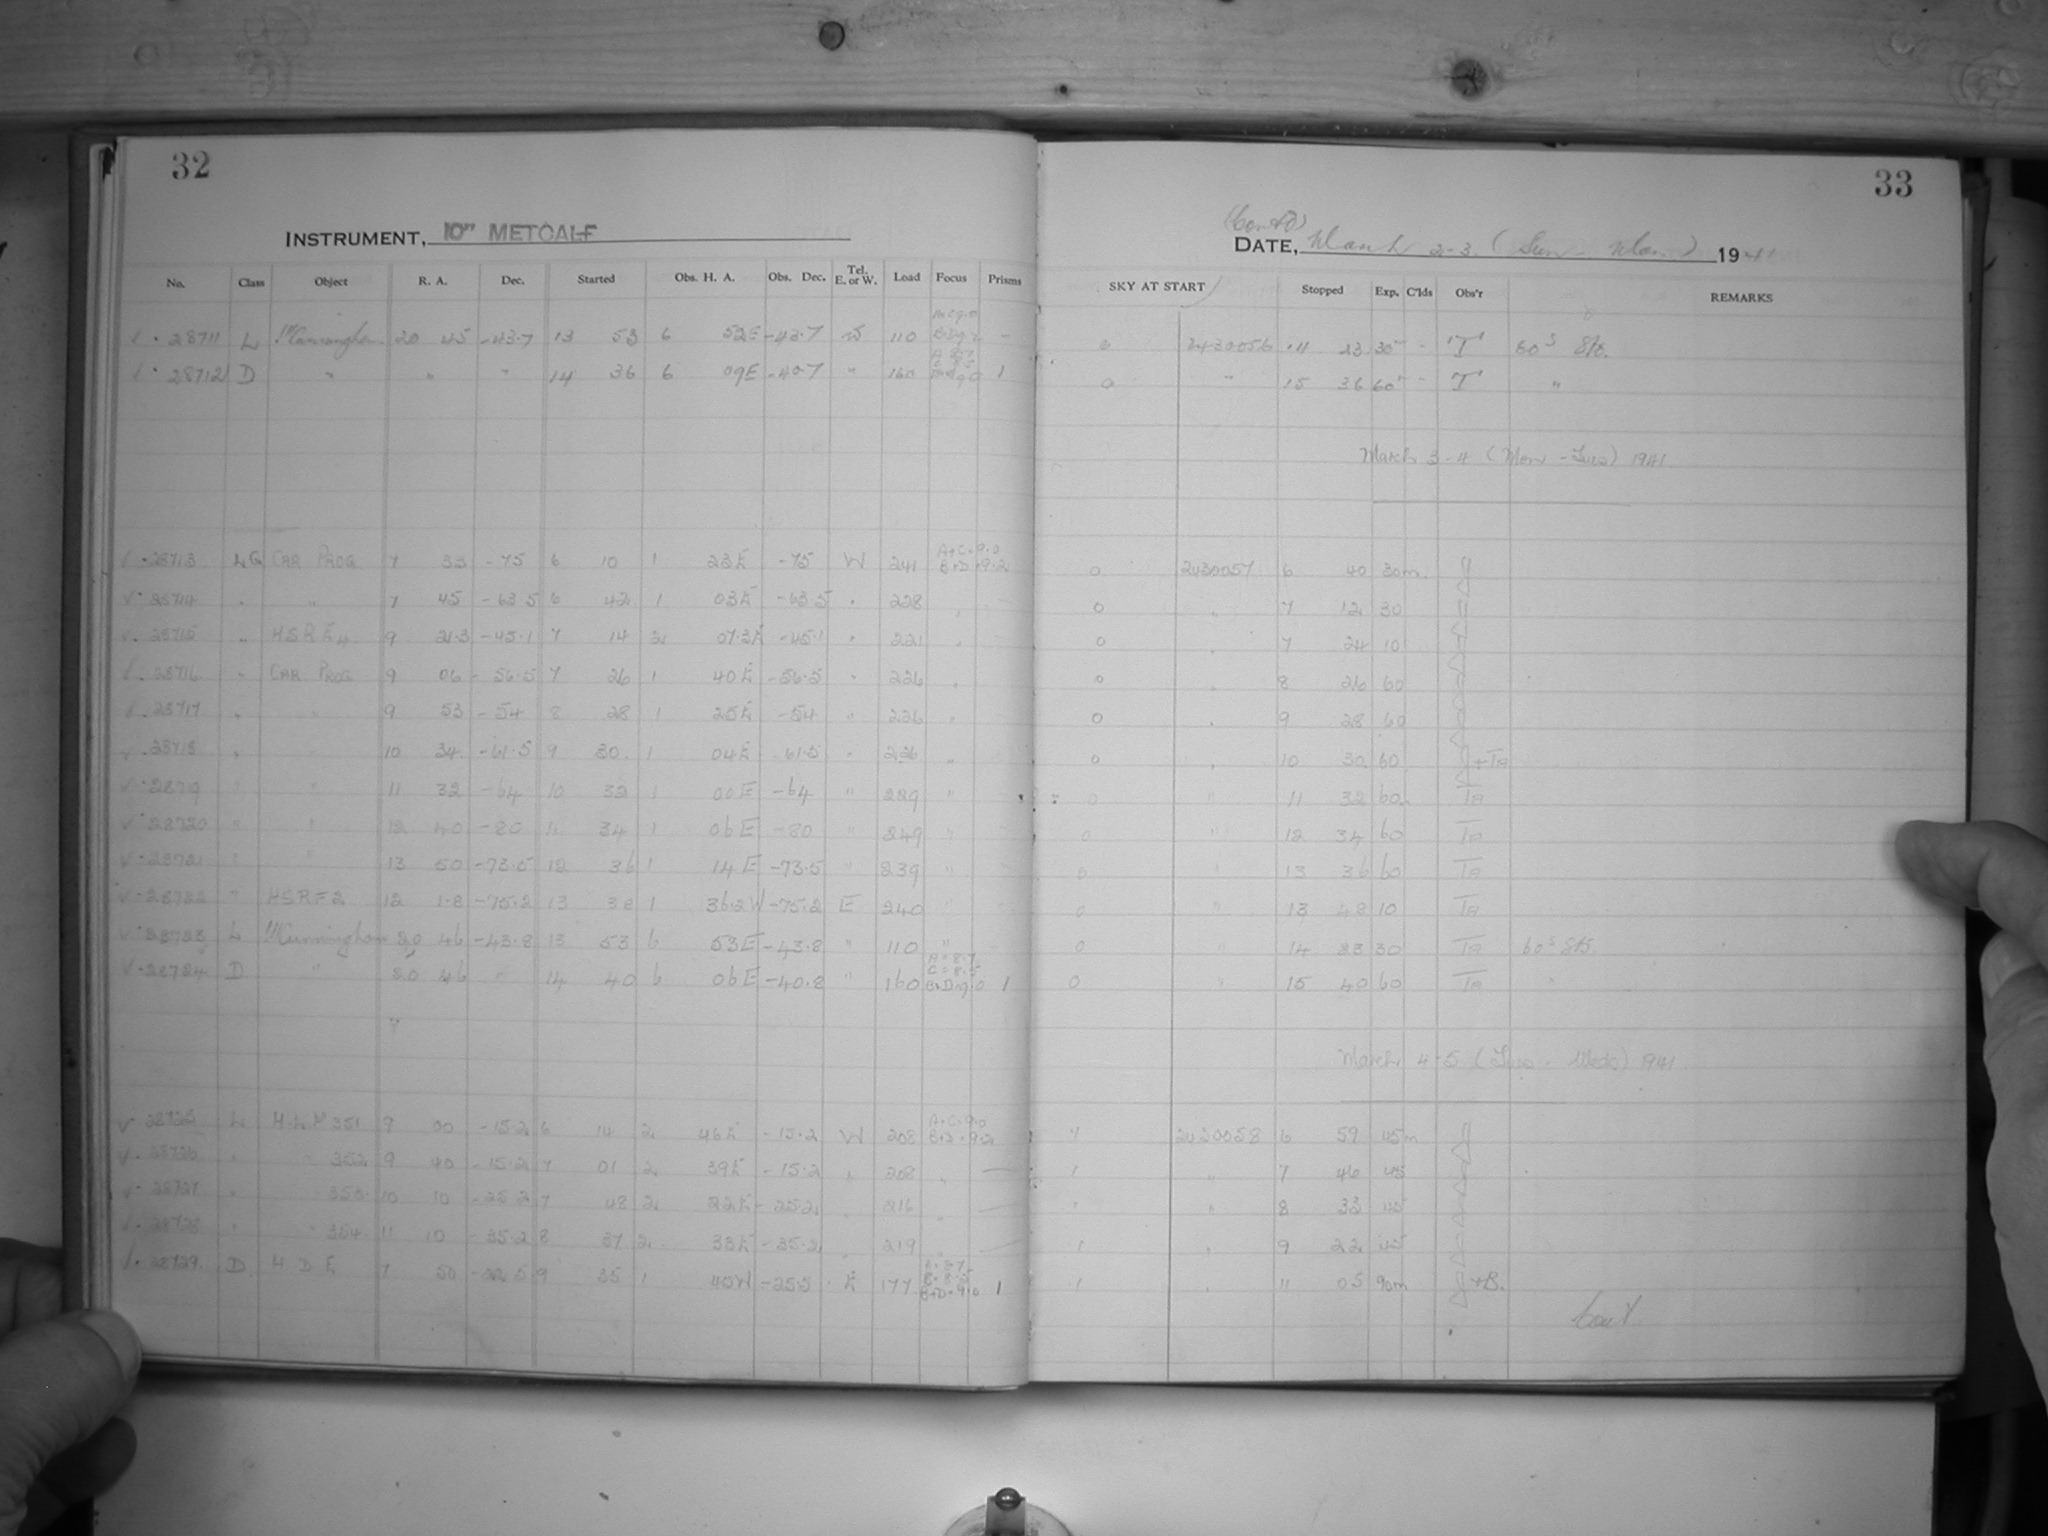 32
INSTRUMENT, 10" METCALF
No. Class Object R. A. Dec. Started Obs. H. A. Obs. Dec. Tel. E. or W. Load Focus Prisms
28711 L 20 45 -43.7 13 53 6 52E -43.7 110 -
28712 D " " " 14 36 6 09E -40.7 " 160 1
28713 LG CAR PROG 7 33 -75 6 10 1 23E -75 W 241 A+C=9.0 B+D=9.2
28714 " " 7 45 -63.5 6 42 1 03E -63.5 " 228 "
28715 " 9 21.3 -45.1 7 14 2 07.3E -45.1 " 221 "
28716 " CAR PROG 9 06 -56.5 7 26 1 40E -56.5 " 226 "
28717 " " 9 53 -54 8 28 1 25E -54 " 226 "
28718 " " 10 34 -61.5 9 30 1 04E -61.5 " 226 "
28719 " " 11 32 -64 10 32 1 00E -64 " 229 "
28720 " " 12 40 -80 11 34 1 06E -80 " 249 "
28721 " " 13 50 -73.5 12 36 1 14E -73.5 " 239 "
28722 " HSRF2 12 1.8 -75.2 13 38 1 36.2W -75.2 E 240 "
28723 L Cunningham 20 46 -43.8 13 53 6 53E -43.8 " 110 "
28724 D " 20 46 " 14 40 6 06E -40.8 " 160 A=8.7 C=8.5 B+D=9.0 1
28725 L 351 9 00 -15.2 6 14 2 46E -15.2 W 208 A+C=9.0 B+D=9.2
28726 " " 352 9 40 -15.2 7 01 2 39E -15.2 " 208 "
28727 " " 353 10 10 -25.2 7 48 2 22E -25.2 " 216 "
28728 " " 354 11 10 -35.2 8 37 2 33E -35.2 " 219 "
28729 D 7 50 9 35 1 -25.5 E 177 B+D=9.0 1
33
(Contd)
DATE, March 2-3 (Sun - Mon) 1941
SKY AT START Stopped Exp. C'lds Obs'r REMARKS
0 2430056 14 23 30m - T 60s
0 " 15 36 60m - T "
March 3-4 (Mon - Tues) 1941
0 2430057 6 40 30m J
0 " 7 12 30
0 " 7 24 10
0 " 8 26 60
0 " 9 28 60
0 " 10 30 60 J+Ta
0 " 11 32 60 Ta
0 " 12 34 60 Ta
0 " 13 36 60 Ta
0 " 13 48 10 Ta
0 " 14 23 30 Ta 60s
0 " 15 40 60 Ta "
March 4-5 (Tues - Weds) 1941
1 2430058 6 59 45m J
1 " 7 46 45
" " 8 33 45
1 " 9 22 45
1 " 11 05 90m J+B.
Cont